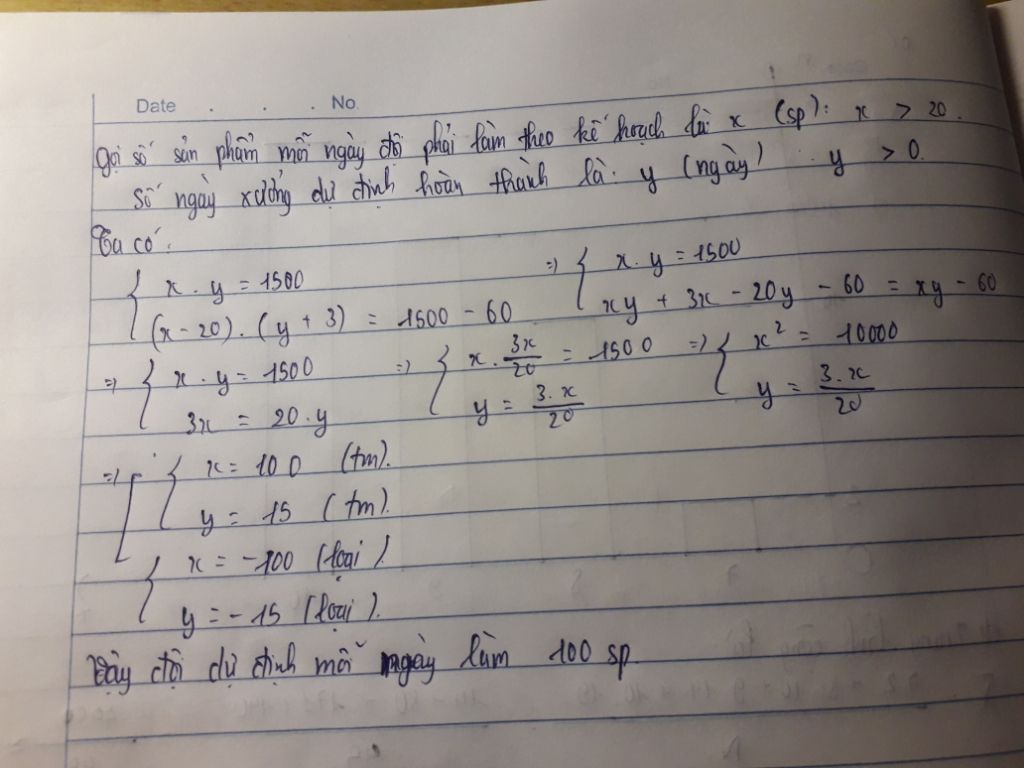 Date . . . No.
Gọi số sản phẩm mỗi ngày đội phải làm theo kế hoạch là x (sp): x > 20.
Số ngày xưởng dự định hoàn thành là: y (ngày) y > 0.
Ta có:
{ x . y = 1500
(x - 20) . (y + 3) = 1500 - 60
=> { x . y = 1500
xy + 3x - 20y - 60 = xy - 60
=> { x . y = 1500
3x = 20 . y
=> { x . 3x/20 = 1500
y = 3.x/20
=> { x² = 10000
y = 3.x/20
=> [ { x = 100 (tm).
y = 15 (tm).
{ x = -100 (loại)
y = -15 (loại).
Vậy đội dự định mỗi ngày làm 100 sp